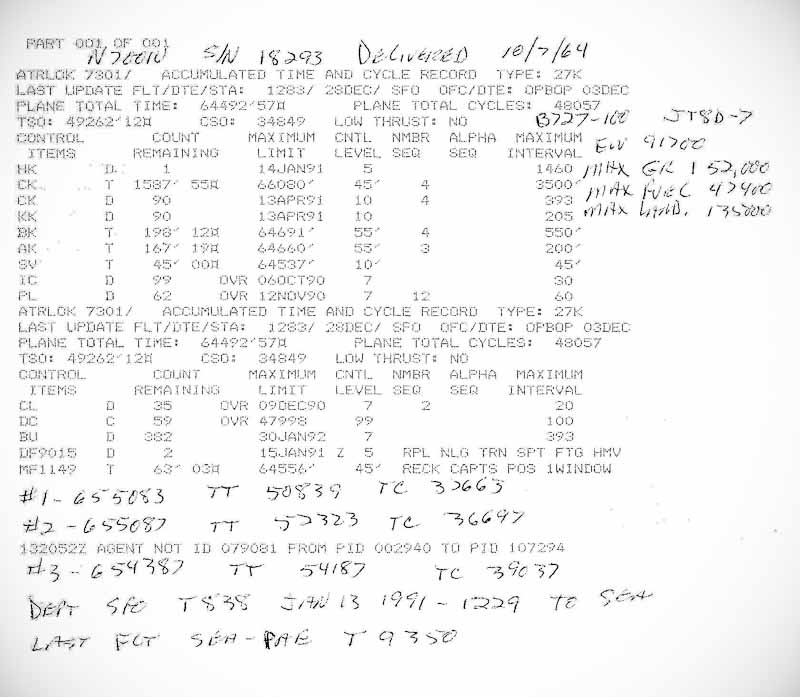 PART 001 OF 001
N7001U S/N 18293 DELIVERED 10/7/64
ATRLOK 7301/ ACCUMULATED TIME AND CYCLE RECORD TYPE: 27K
LAST UPDATE FLT/DTE/STA: 1283/ 28DEC/ SFO OFC/DTE: OPBOP 03DEC
PLANE TOTAL TIME: 64492'57¤ PLANE TOTAL CYCLES: 48057
TSO: 49262'12¤ CSO: 34849 LOW THRUST: NO B727-100 JT8D-7
CONTROL COUNT MAXIMUM CNTL NMBR ALPHA MAXIMUM EW 91700
ITEMS REMAINING LIMIT LEVEL SEQ SEQ INTERVAL
HK D 1 14JAN91 5 1460 MAX GR 152,000
CK T 1587' 55¤ 66080' 45' 4 3500' MAX FUEL 47400
CK D 90 13APR91 10 4 393
KK D 90 13APR91 10 205 MAX LAND. 135000
BK T 198' 12¤ 64691' 55' 4 550'
AK T 167' 19¤ 64660' 55' 3 200'
SV T 45' 00¤ 64537' 10' 45'
IC D 99 OVR 06OCT90 7 30
PL D 62 OVR 12NOV90 7 12 60
ATRLOK 7301/ ACCUMULATED TIME AND CYCLE RECORD TYPE: 27K
LAST UPDATE FLT/DTE/STA: 1283/ 28DEC/ SFO OFC/DTE: OPBOP 03DEC
PLANE TOTAL TIME: 64492'57¤ PLANE TOTAL CYCLES: 48057
TSO: 49262'12¤ CSO: 34849 LOW THRUST: NO
CONTROL COUNT MAXIMUM CNTL NMBR ALPHA MAXIMUM
ITEMS REMAINING LIMIT LEVEL SEQ SEQ INTERVAL
CL D 35 OVR 09DEC90 7 2 20
DC C 59 OVR 47998 99 100
BU D 382 30JAN92 7 393
DF9015 D 2 15JAN91 Z 5 RPL NLG TRN SPT FTG HMV
MF1149 T 63' 03¤ 64556' 45' RECK CAPTS POS 1WINDOW
#1 - 655083 TT 50839 TC 32663
#2 - 655087 TT 52323 TC 36697
132052Z AGENT NOT ID 079081 FROM PID 002940 TO PID 107294
#3 - 654387 TT 54187 TC 39037
DEPT SFO T838 JAN 13 1991 - 1229 TO SEA
LAST FLT SEA-PAE T 9350